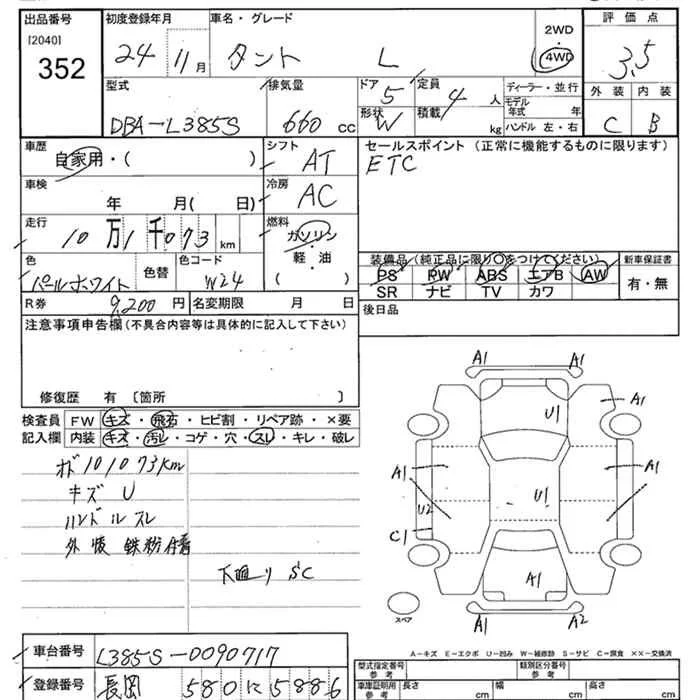 出品番号 初度登録年月 車名・グレード 2WD 評価点
[2040] 24 11月 タント L 4WD 3.5
352
型式 排気量 ドア 定員 ディーラー・並行 外装 内装
DBA-L385S 660 cc 5 4 人 モデル年式 年
形状 W 積載 kg ハンドル 左・右 C B
車歴 シフト セールスポイント (正常に機能するものに限ります)
自家用・( ) AT ETC
車検 冷房
年 月( 日) AC
走行 燃料
10万1千073 km ガソリン・軽油
( )
色 色替 色コード 装備品 (純正品に限り○をつけてください) 新車保証書
パールホワイト W24 PS PW ABS エアB AW 有・無
SR ナビ TV カワ
R券 9,200円 名変期限 月 日 後日品
注意事項申告欄 (不具合内容等は具体的に記入して下さい)
修復歴 有 〔箇所 〕
検査員 FW キズ・飛石・ヒビ割・リペア跡・×要
記入欄 内装 キズ・汚レ・コゲ・穴・スレ・キレ・破レ
オド 101073km
キズ U
ハンドルスレ
外装 鉄粉付着
下廻り SC
A1 A1
U1 A1
A1 A1
U1
U2
C1
A1
A1 A2
スペア
A-キズ E-エクボ U-凹み W-補修跡 S-サビ C-腐食 ××-交換済
車台番号 L385S-0090717
登録番号 長岡 580 に 5886
型式指定番号 参考 類別区分番号 参考
車庫証明用 参考 長さ cm 幅 cm 高さ cm